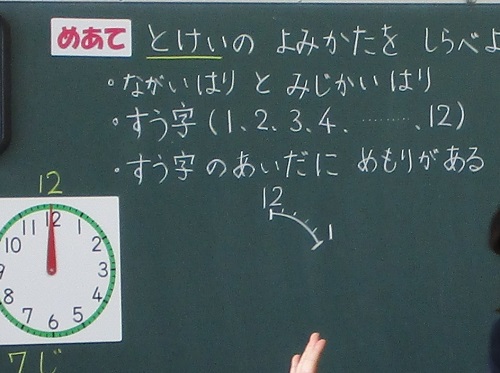 めあて とけいの よみかたを しらべよ
・ながいはり と みじかい はり
・すう字 (1、2、3、4、………、12)
・すう字 の あいだに めもりがある
12
12 1
12 1 2 3 4 5 6 7 8 9 10 11
7じ